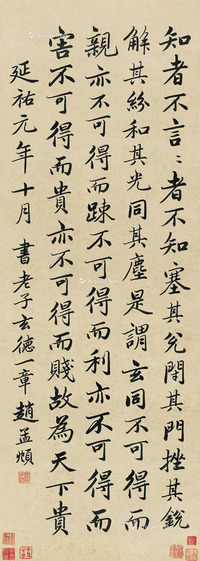 知者不言〻者不知塞其兌閉其門挫其銳
解其紛和其光同其塵是謂玄同不可得而
親亦不可得而踈不可得而利亦不可得而
害不可得而貴亦不可得而賤故為天下貴
延祐元年十月書老子玄德一章趙孟頫